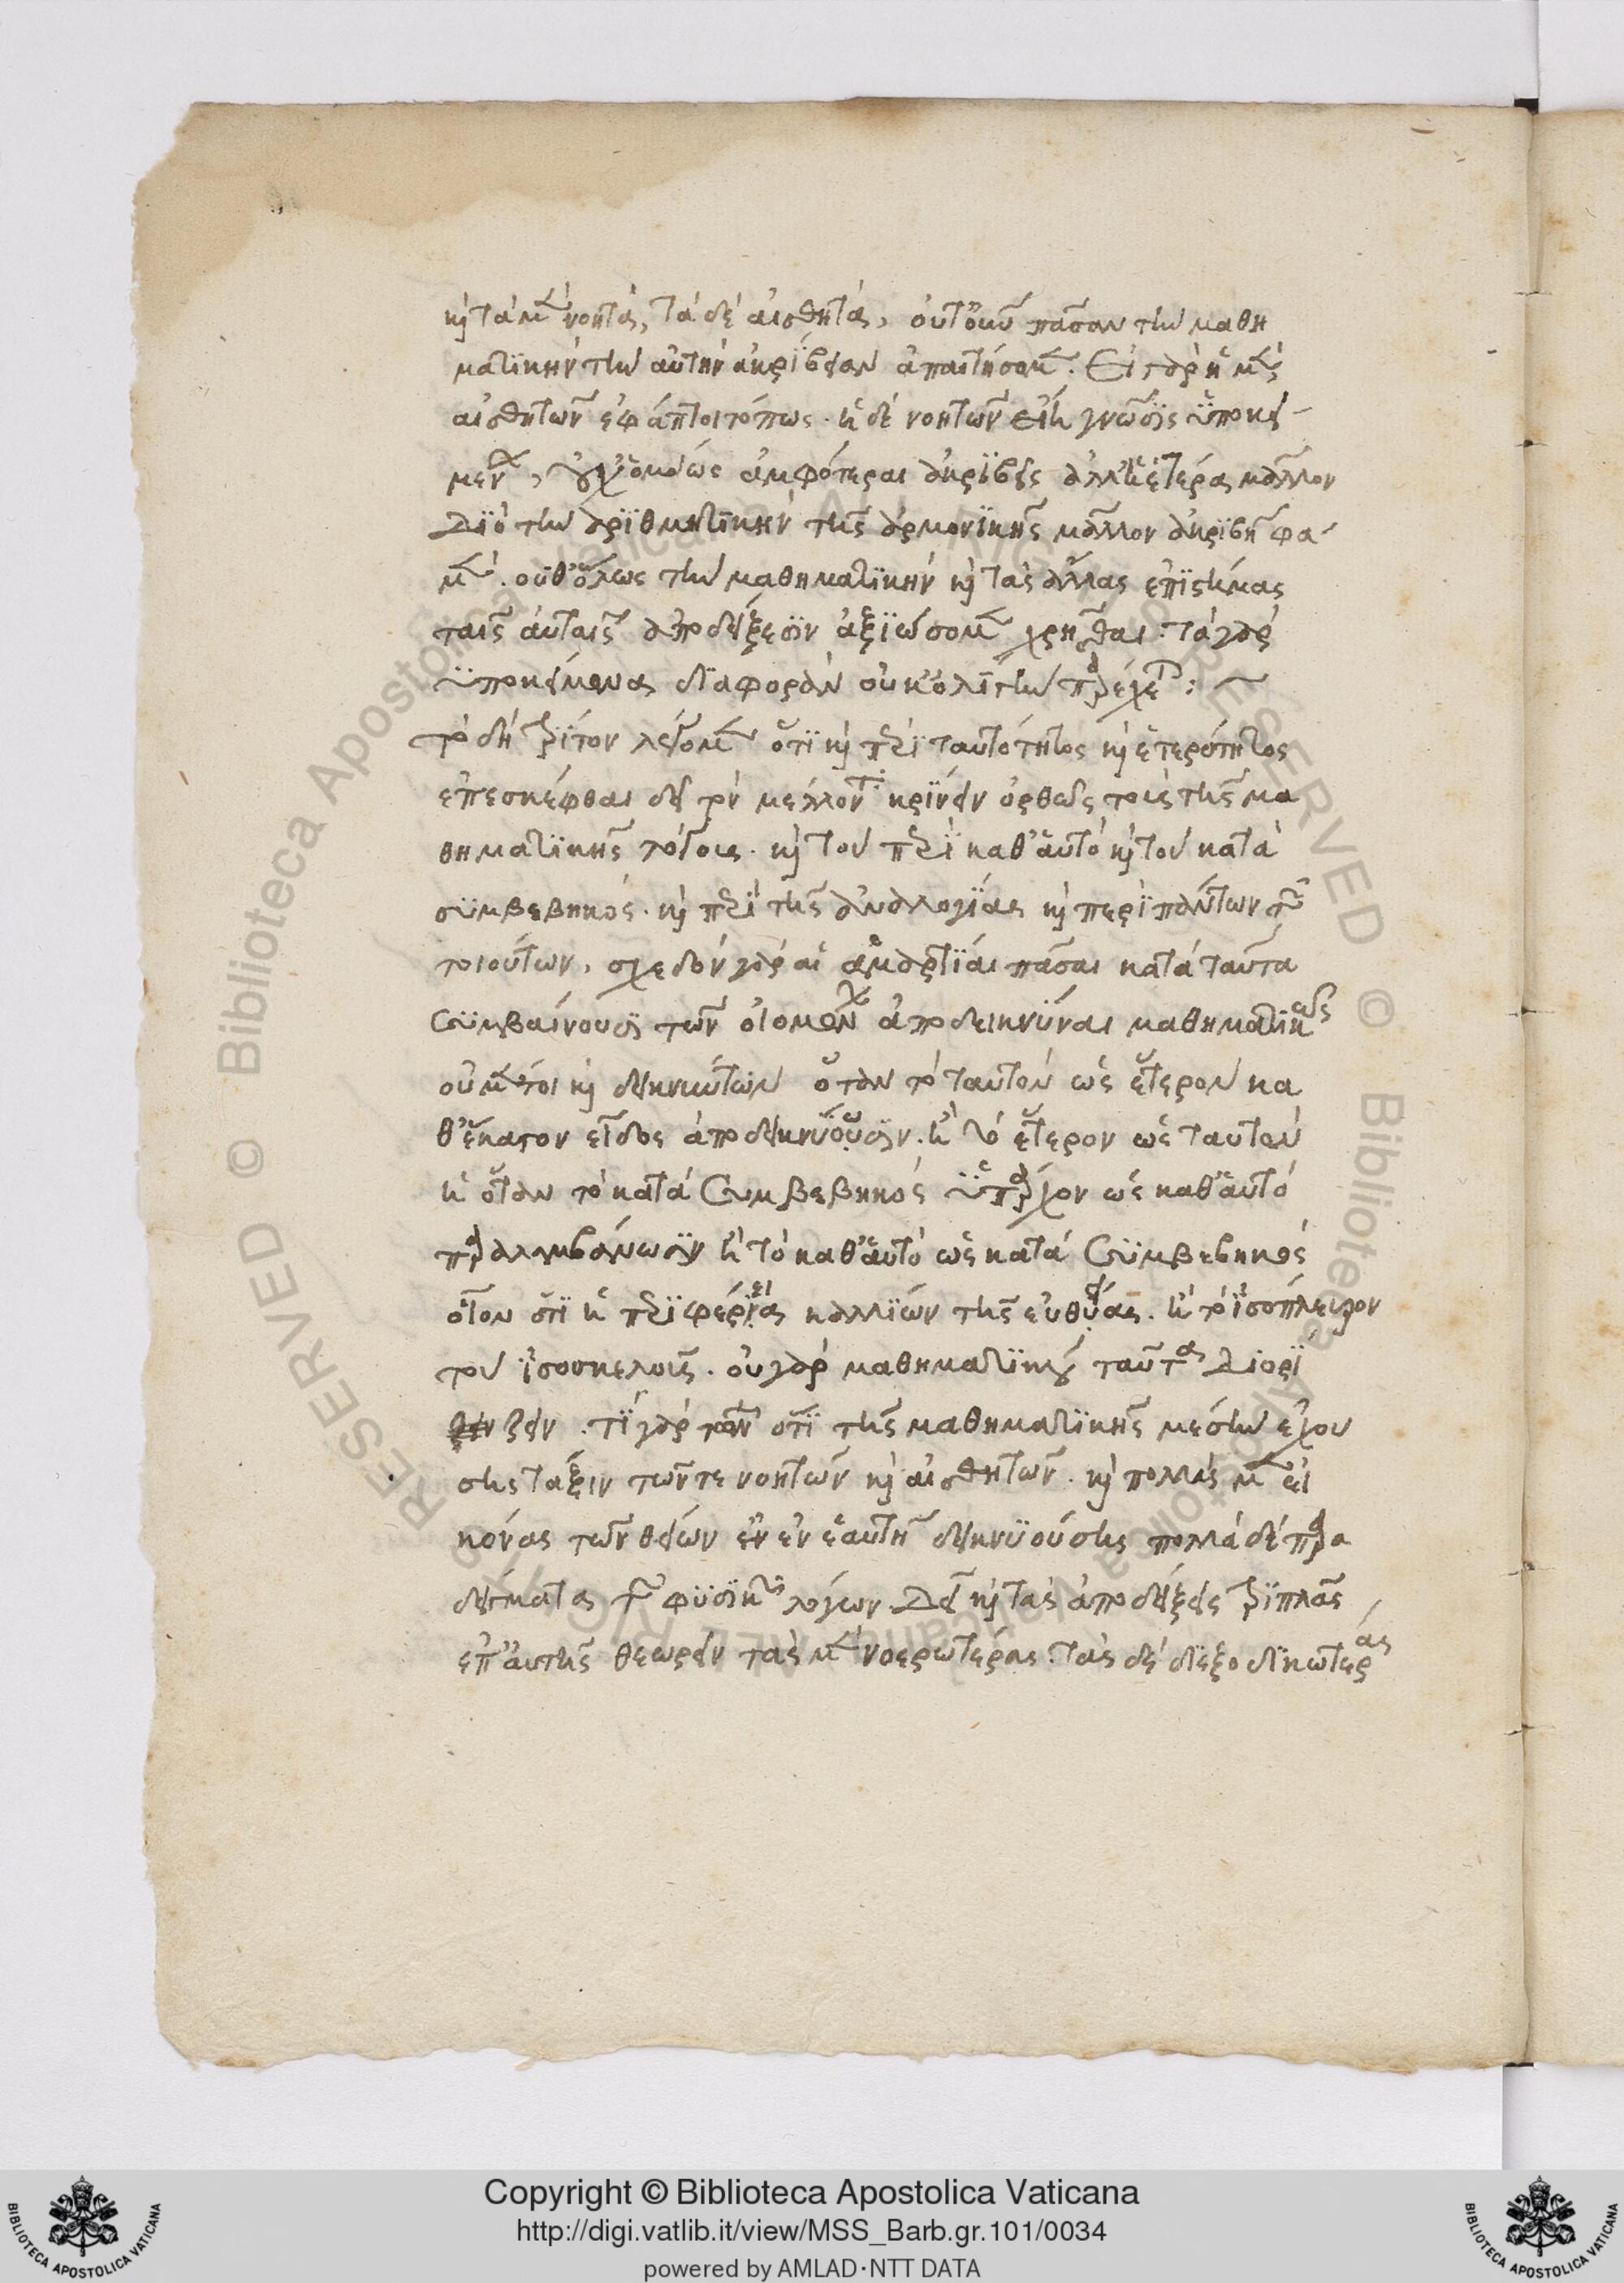 καὶ τὰ μὲν νοητὰ, τὰ δὲ αἰσθητὰ, οὐτοῦν πᾶσαν τὴν μαθη
ματϊκὴν τὴν αὐτὴν ἀκρίβειαν ἀπαιτήσομεν. Εἰ γὰρ ἡ μὲν
αἰσθητῶν ἐφάπτοιτό πως. ἡ δὲ νοητῶν εἴη γνῶσϊς ὑποκει-
μένων, οὐχ ὁμοίως ἀμφότεραι ἀκρϊβεῖς ἀλλ' ἡ ἑτέρα μᾶλλον
Δϊὸ τὴν ἀρϊθμητϊκὴν τῆς ἁρμονϊκῆς μᾶλλον ἀκρϊβῆ φα-
μέν. οὔθ' ὅλως τὴν μαθηματϊκὴν καὶ τὰς ἄλλας ἐπϊστήμας
ταῖς αὐταῖς ἀποδείξεσϊν ἀξϊώσομεν χρῆσθαι. τὰ γὰρ
ὑποκείμενα διαφορὰν οὐκ ὀλίγην παρέχεται :~
τὸ δὴ τρίτον λέγομεν ὅτϊ καὶ περὶ ταυτότητος καὶ ἑτερότητος
ἐπεσκέφθαι δεῖ τὸν μέλλοντα κρίνειν ὀρθῶς τοὺς τῆς μα
θηματϊκῆς λόγους. καὶ τοῦ περὶ καθ' αὑτὸ καὶ τοῦ κατὰ
συμβεβηκός. καὶ περὶ τῆς ἀναλογίας καὶ περὶ πάντων τῶν
τοιούτων, σχεδὸν γὰρ αἱ ἁμαρτίαι πᾶσαι κατὰ ταῦτα
συμβαίνουσϊ τῶν οἰομένων ἀποδεικνύναι μαθηματϊκῶς
οὐ μέντοι καὶ δεικνύντων ὅταν τὸ ταυτὸν ὡς ἕτερον κα
θ' ἕκαστον εἶδος ἀποδεικνύουσϊν. ἢ τὸ ἕτερον ὡς ταυτὸν
ἢ ὅταν τὸ κατὰ συμβεβηκὸς ὑπάρχον ὡς καθ' αὑτὸ
παραλαμβάνωσϊν ἢ τὸ καθ' αὑτὸ ὡς κατὰ συμβεβηκὸς
οἷον ὅτϊ ἡ περϊφέρεια καλλϊών τῆς εὐθείας. ἢ τὸ ἰσόπλευρον
τοῦ ἰσοσκελοῦς. οὐ γὰρ μαθηματϊκοῦ ταῦτα διορϊ
ζειν. τὸ γὰρ τοῦν ὅτϊ τῆς μαθηματϊκῆς μέσην ἐχού
σης τάξιν τῶν τε νοητῶν καὶ αἰσθητῶν. καὶ πολλὰς μὲν εἰ
κόνας τῶν θείων ἐν ἑαυτῇ δεικνυούσης πολλὰ δὲ παρα
δείγματα τῶν φυσϊκῶν λόγων. Δεῖ καὶ τὰς ἀποδείξεις τρϊπλᾶς
ἐπ' αὐτῆς θεωρεῖν τὰς μὲν νοερωτέρας. τὰς δὲ διεξοδϊκωτέρας
Copyright © Biblioteca Apostolica Vaticana
http://digi.vatlib.it/view/MSS_Barb.gr.101/0034
powered by AMLAD·NTT DATA